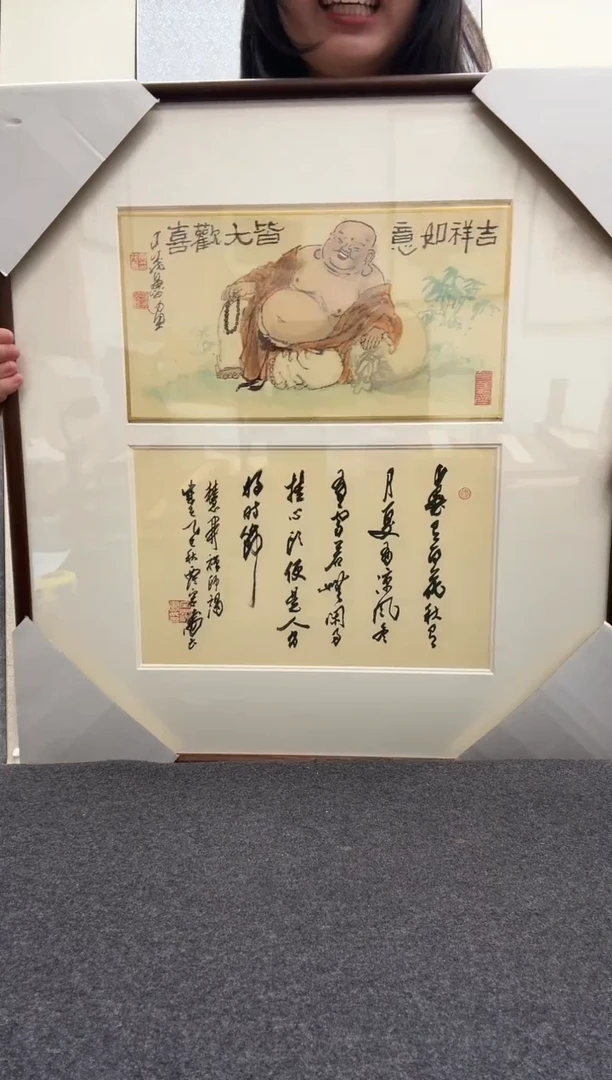 吉祥如意
皆大歡喜
春有百花秋有
月夏有涼風冬
有雪若無閑事
挂心頭便是人間
好時節
慧開禪師偈